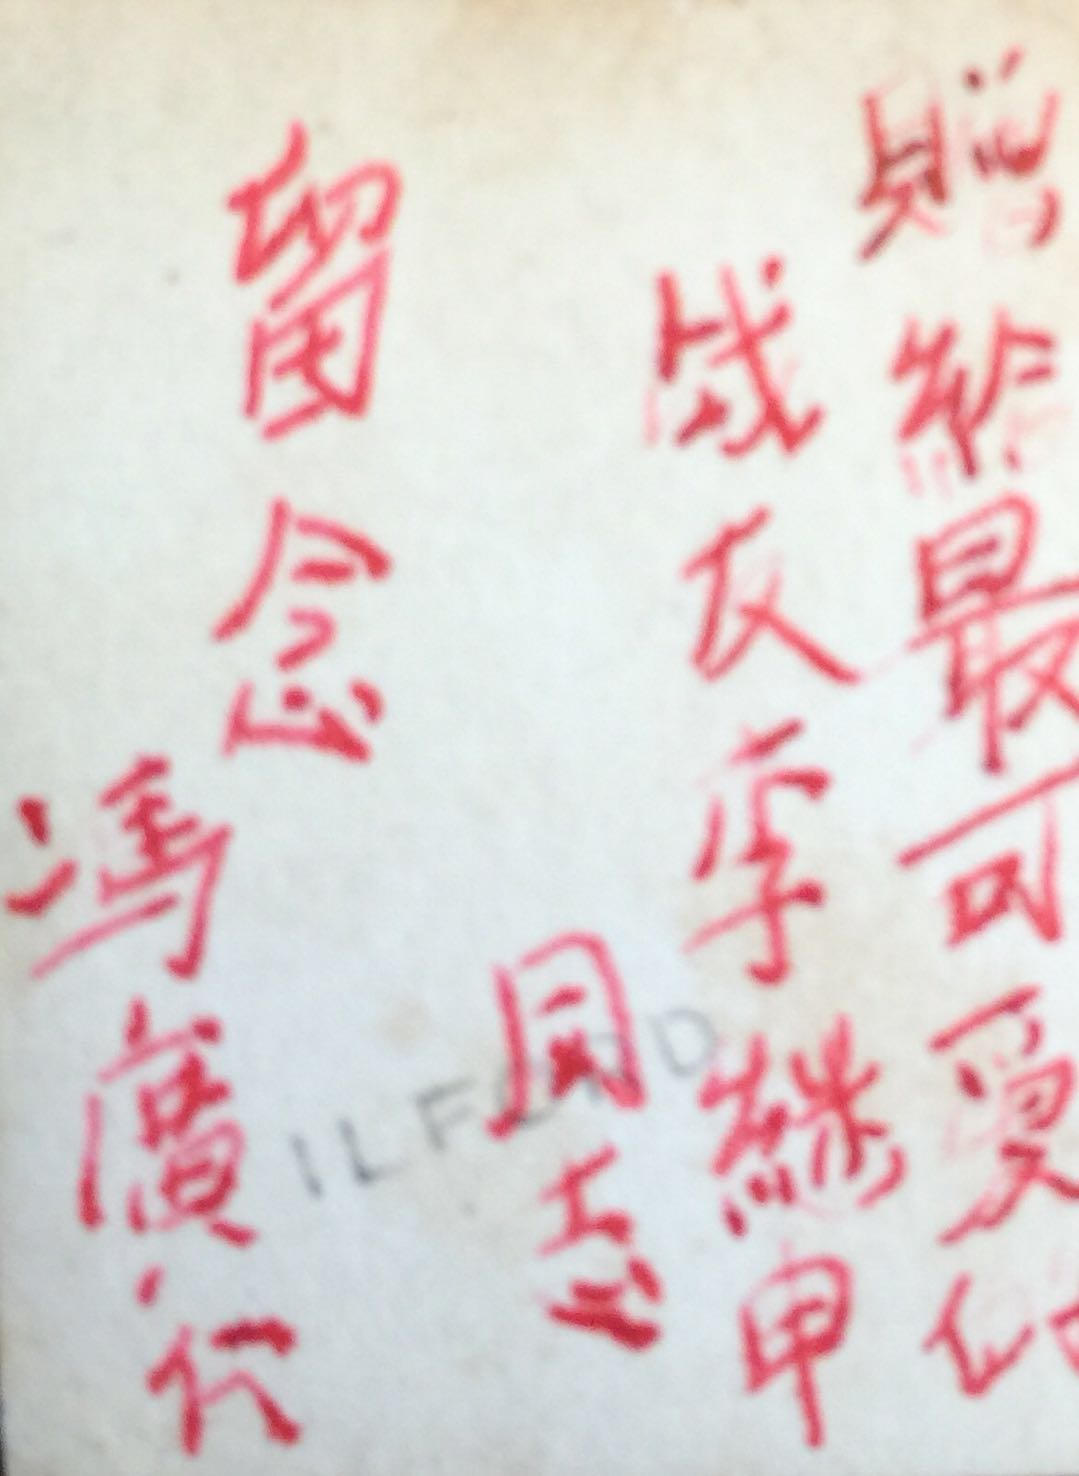 贈給最可爱的
战友李継甲
同志
留念
馮廣
ILFORD